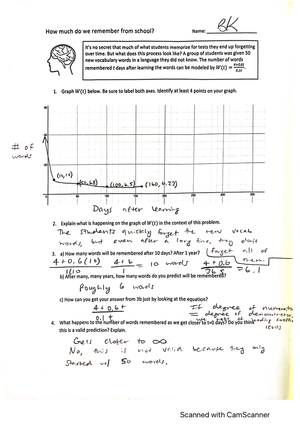 How much do we remember from school?
Name: BK
It's no secret that much of what students memorize for tests they end up forgetting
over time. But what does this process look like? A group of students was given 50
new vocabulary words in a language they did not know. The number of words
remembered t days after learning the words can be modeled by W(t) =
1. Graph W(t) below. Be sure to label both axes. Identify at least 4 points on your graph.
# of
words
(10, 10)
(100, 6.5)
Days after learning
2. Explain what is happening on the graph of W(t) in the context of this problem.
The students quickly forget the new vocab
words, but even after a long time, they don't
forget all of
them.
3. a) How many words will be remembered after 10 days? After 1 year?
= 10 words
= 6.1
b) After many, many years, how many words do you predict will be remembered?
Roughly 6 words
c) How can you get your answer from 3b just by looking at the equation?
If degree of numerator
= degree of denominator,
4. What happens to the number of words remembered as we get closer to t=0 days? Do you think
this is a valid prediction? Explain.
Gets closer to ∞
No, this is not valid because they only
started w/ 50 words.
Scanned with CamScanner